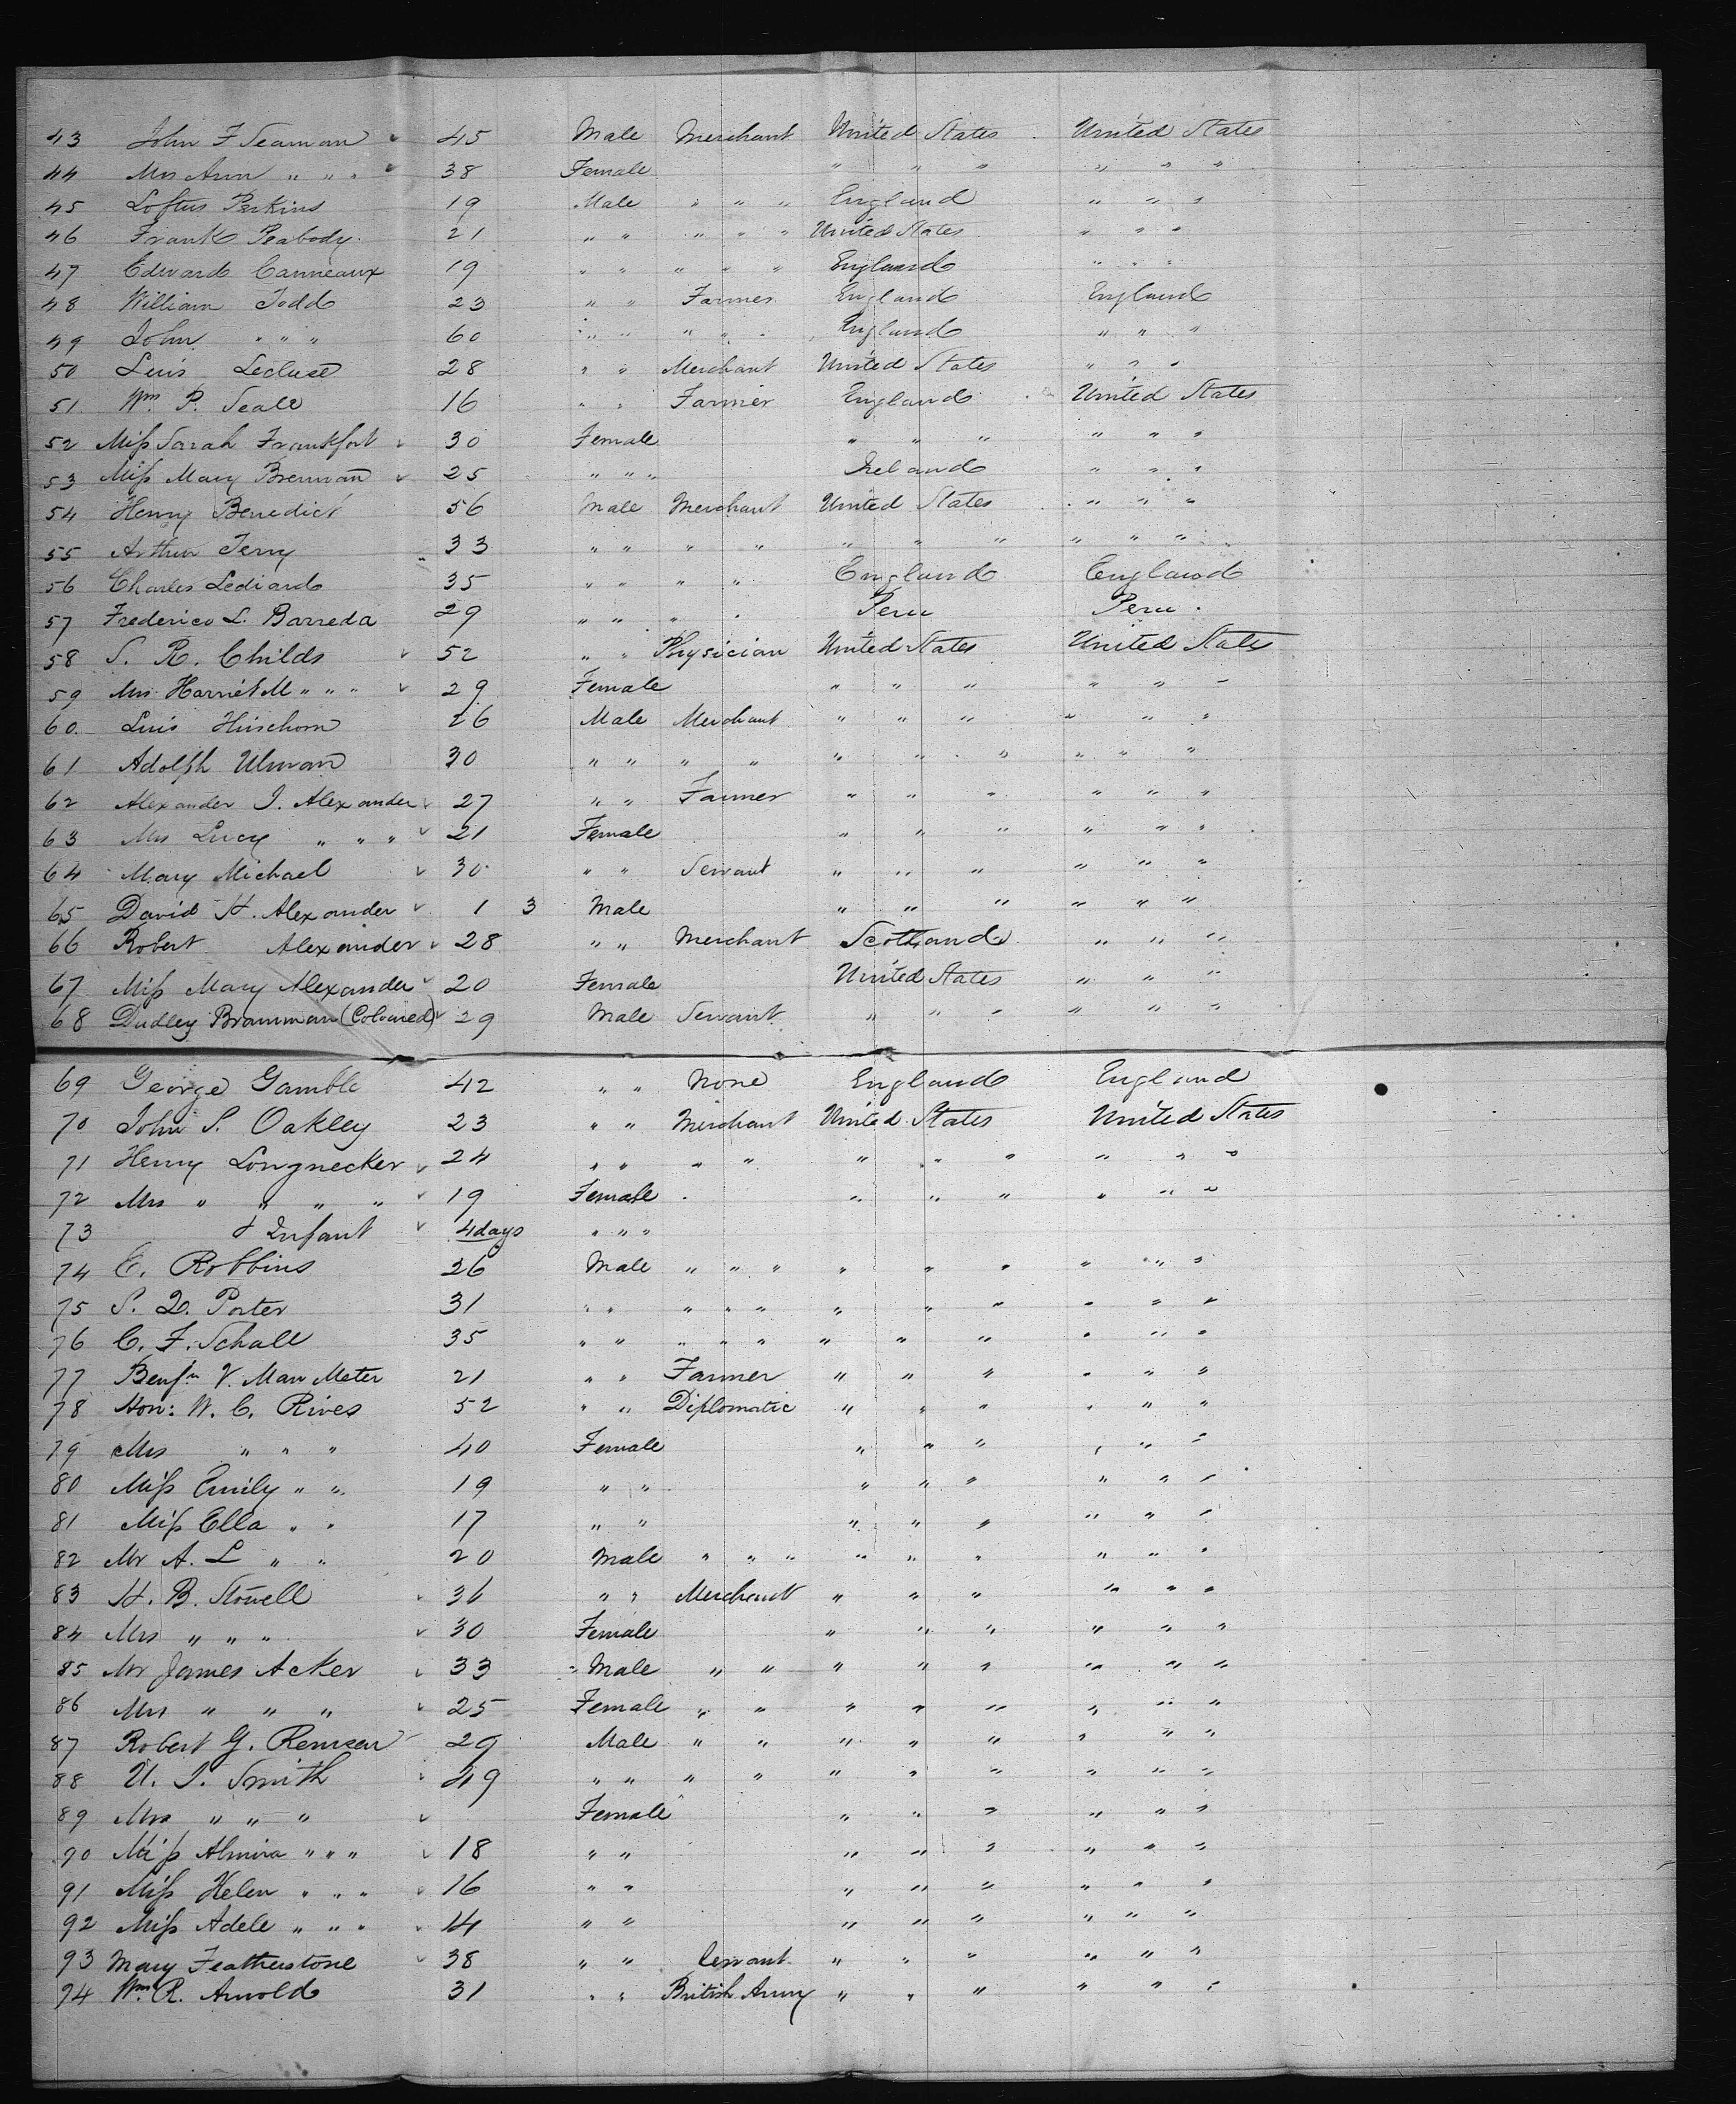 43 John F Seaman 45 Male Merchant United States United States
44 Mrs Ann " " " 38 Female " " " " " "
45 Loftus Perkins 19 Male " " " England " " "
46 Frank Peabody 21 " " " " " United States " " "
47 Edward Canneaux 19 " " " " " England " " "
48 William Todd 23 " " Farmer England England
49 John " " " 60 " " " " " England " " "
50 Luis Lecluse 28 " " Merchant United States " " "
51 Wm. P. Seale 16 " " Farmer England United States
52 Miss Sarah Frankfort 30 Female " " " " " "
53 Miss Mary Brennan 25 " " " Ireland " " "
54 Henry Benedict 56 Male Merchant United States " " "
55 Arthur Terry 33 " " " " " " " " " "
56 Charles Lediard 35 " " " " England England
57 Frederico L. Barreda 29 " " " " Peru Peru
58 S. R. Childs 52 " " Physician United States United States
59 Mrs Harriet M " " " 29 Female " " " " " "
60 Luis Hirschorn 26 Male Merchant " " " " " "
61 Adolph Ulman 30 " " " " " " " " " "
62 Alexander J. Alexander 27 " " Farmer " " " " " "
63 Mrs Lucy " " " 21 Female " " " " " "
64 Mary Michael 30 " " Servant " " " " " "
65 David H. Alexander 1 3 Male " " " " " "
66 Robert Alexander 28 " " Merchant Scotland " " "
67 Miss Mary Alexander 20 Female United States " " "
68 Dudley Bramman (Coloured) 29 Male Servant " " " " " "
69 George Gamble 42 " " None England England
70 John S. Oakley 23 " " Merchant United States United States
71 Henry Longnecker 24 " " " " " " " " " "
72 Mrs " " " " 19 Female " " " " " "
73 & Infant 4 days " " "
74 E. Robbins 26 Male " " " " " " " " "
75 S. D. Porter 31 " " " " " " " " " " "
76 C. F. Schall 35 " " " " " " " " " " "
77 Benjn V. Man Meter 21 " " Farmer " " " " " "
78 Hon: W. C. Rives 52 " " Diplomatic " " " " " "
79 Mrs " " " 40 Female " " " " " "
80 Miss Emily " " 19 " " " " " " " "
81 Miss Ella " " 17 " " " " " " " "
82 Mr A. L " " 20 Male " " " " " " " " "
83 H. B. Stowell 36 " " Merchant " " " " " "
84 Mrs " " " 30 Female " " " " " "
85 Mr James Acker 33 Male " " " " " " " "
86 Mrs " " " 25 Female " " " " " " " "
87 Robert G. Remsen 29 Male " " " " " " " "
88 U. J. Smith 49 " " " " " " " " " "
89 Mrs " " " Female " " " " " "
90 Miss Almira " " " 18 " " " " " " " "
91 Miss Helen " " " 16 " " " " " " " "
92 Miss Adele " " " 14 " " " " " " " "
93 Mary Featherstone 38 " " Servant " " " " " "
94 Wm R. Arnold 31 " " British Army " " " " " "